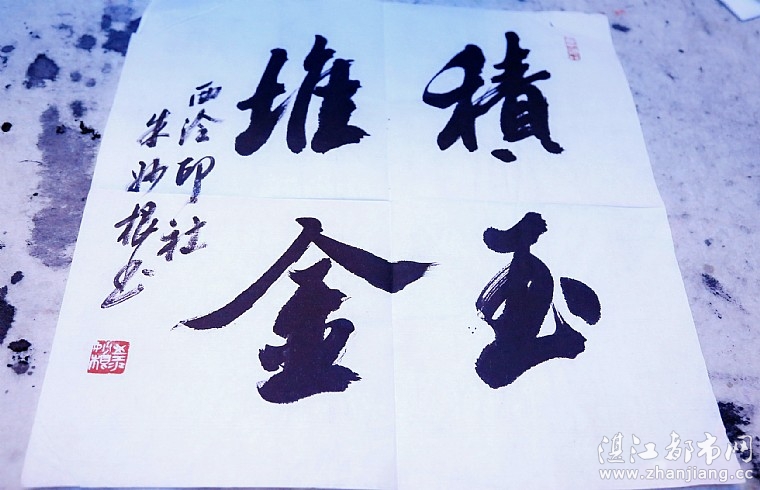 積玉
堆金
西泠印社
朱妙根书
湛江都市网
www.zhanjiang.cc